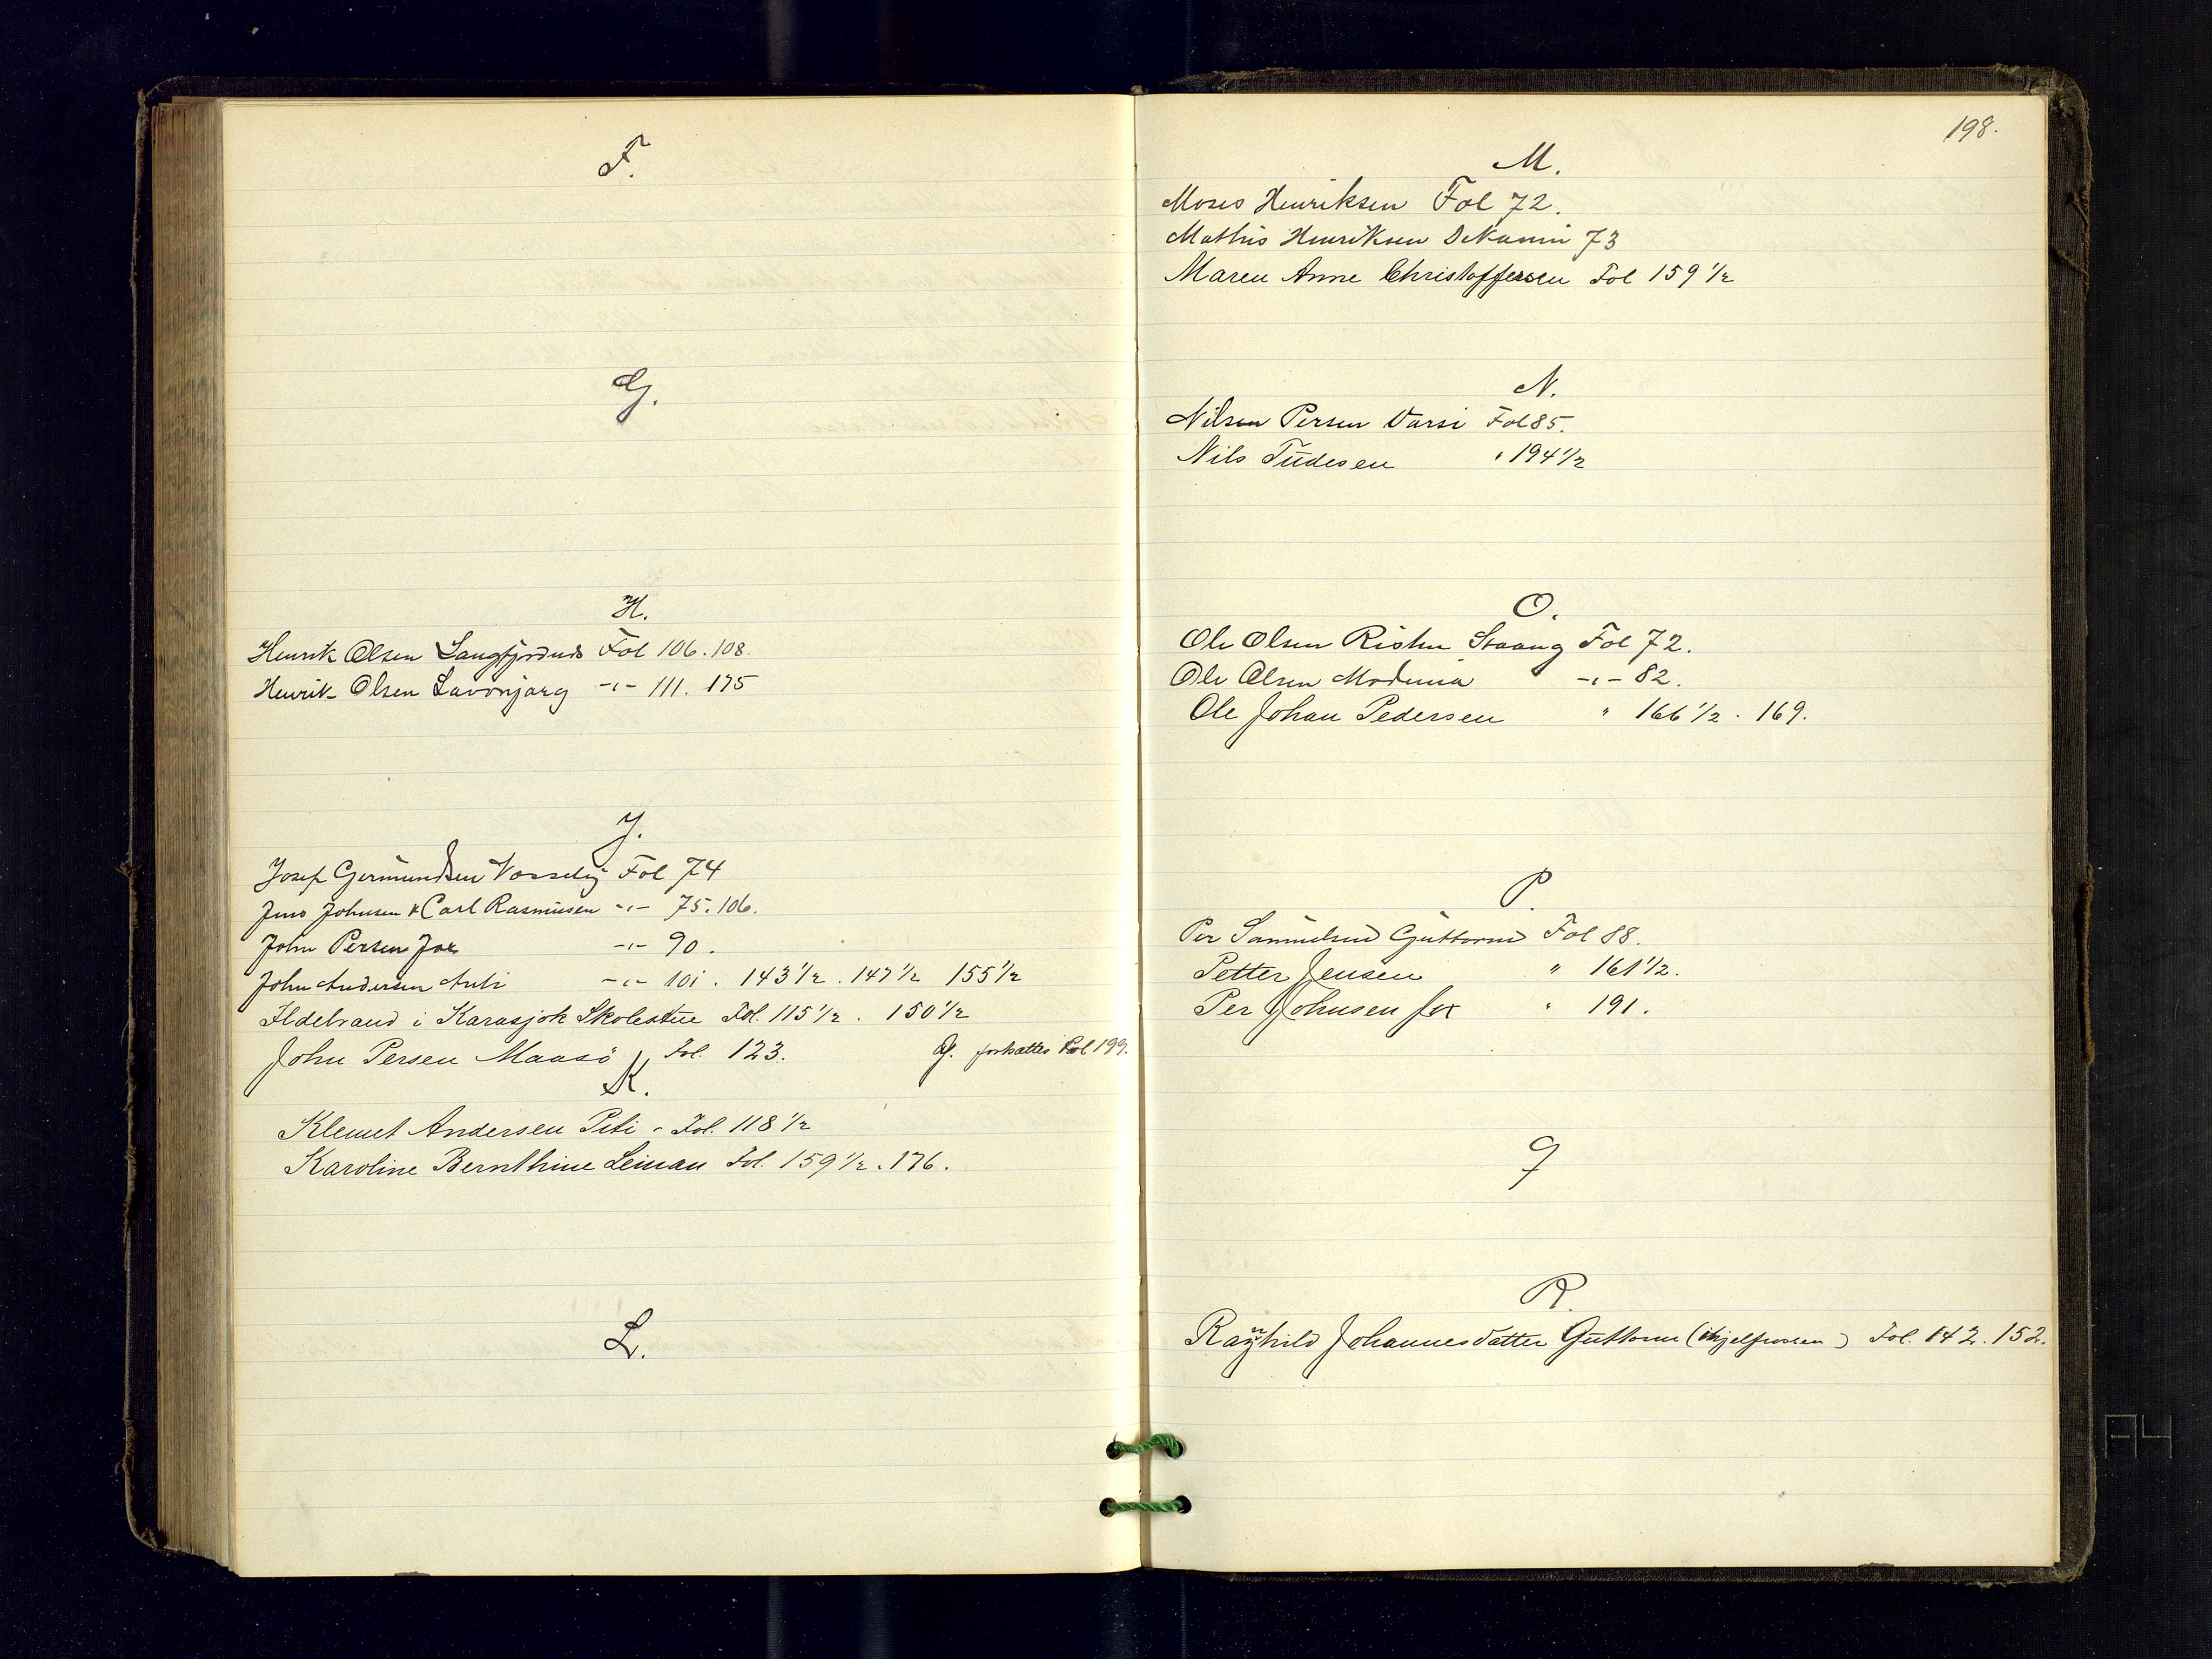 F.
G.
H.
Henrik Olsen Langfjordnes Fol 106. 108.
Henrik Olsen Lavvonjarg -"- 111. 175
J.
Josef Germundsen Fol 74
Jens Johnsen & Carl Rasmusen -"- 75. 106.
John Persen Jox -"- 90.
John Andersen Anti -"- 101. 143 1/2. 147 1/2 155 1/2
Ildebrand i Karasjok Skolestue Fol. 115 1/2. 150 1/2
John Persen Maasö Fol. 123. J. forsattes Fol 199.
K.
Klemet Andersen Piti - Fol. 118 1/2
Karoline Bernthine Leinan Fol. 159 1/2. 176.
L.
198.
M.
Moses Henriksen Fol 72.
Mathis Henriksen 73
Maren Anne Christoffersen Fol 159 1/2
N.
Nilsen Persen Varsi Fol 85.
Nils Tudesen " 194 1/2
O.
Ole Olsen Fol 72.
Ole Olsen -"- 82.
Ole Johan Pedersen " 166 1/2. 169.
P.
Per Samuelsen Guttorm Fol 88.
Petter Jensen " 161 1/2.
Per Johnsen Jox " 191.
Q
R.
Ragnhild Johannesdatter Guttorm (ihjelfrossen) Fol. 142. 152.
A4